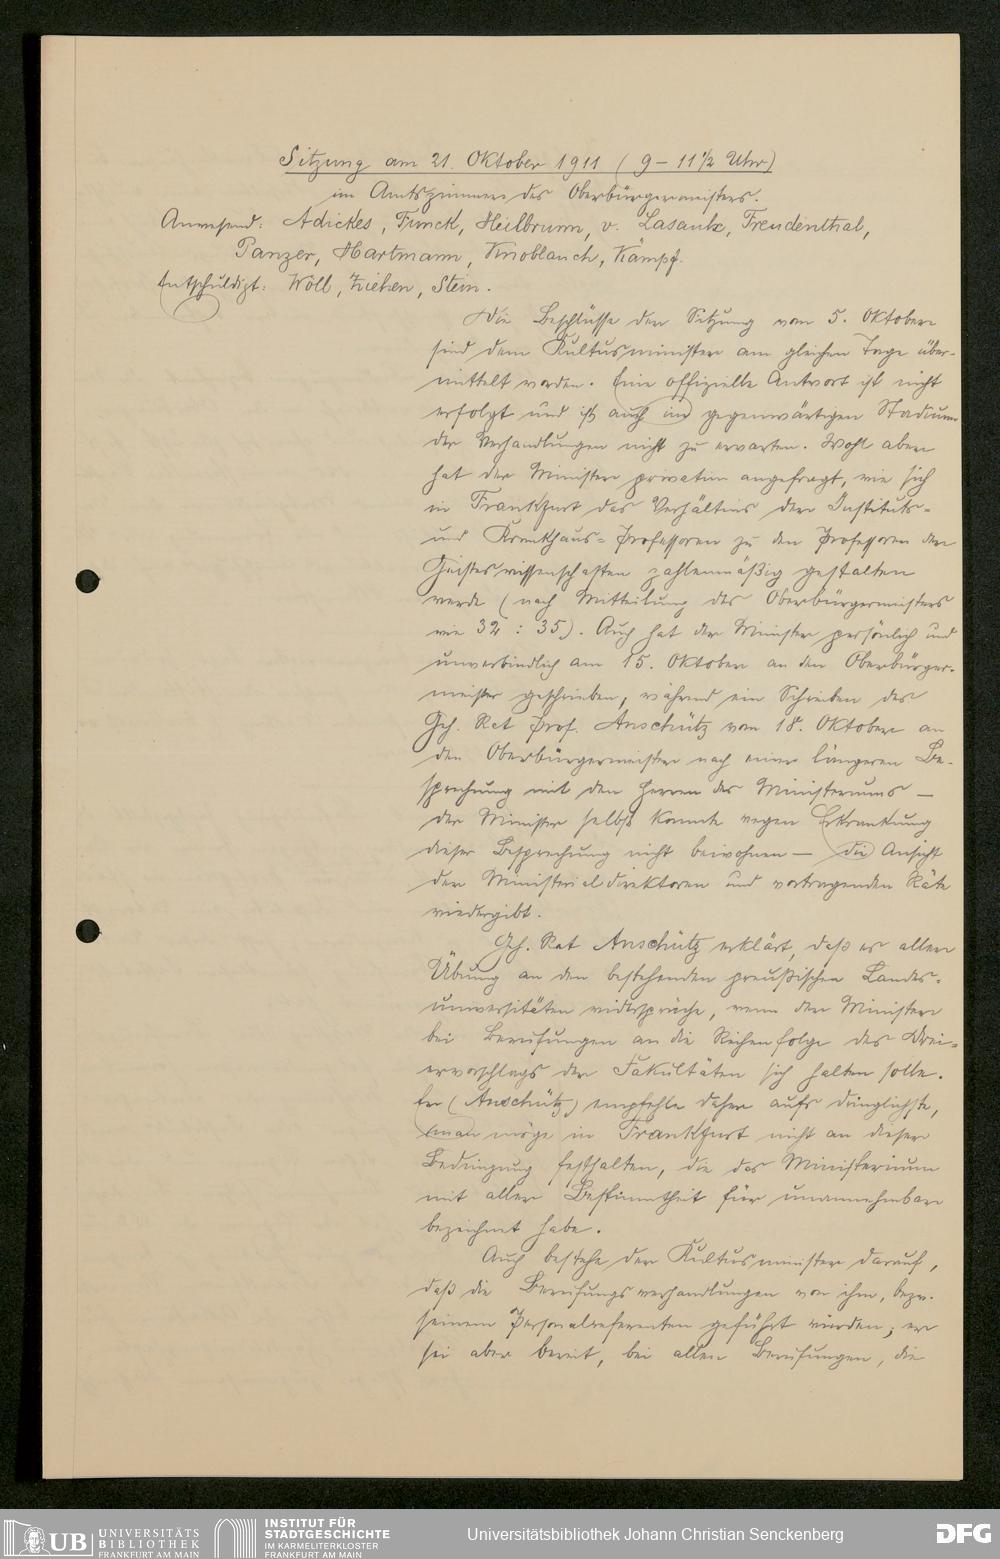 Sitzung am 21. Oktober 1911 (9 – 11 1/2 Uhr)
im Amtszimmer des Oberbürgermeisters.
Anwesend: Adickes, Funck, Heilbrunn, v. Lasaulx, Freudenthal,
Panzer, Hartmann, Knoblauch, Kämpf.
Entschuldigt: Woell, Ziehen, Stein.
Die Beschlüsse der Sitzung vom 5. Oktober
sind dem Kultusminister am gleichen Tage über-
mittelt worden. Eine offizielle Antwort ist nicht
erfolgt und ist auch im gegenwärtigen Stadium
der Verhandlungen nicht zu erwarten. Wohl aber
hat der Minister privatim angefragt, wie sich
in Frankfurt das Verhältnis der Instituts-
und Krankhaus-Professoren zu den Professoren der
Geisteswissenschaften zahlenmäßig gestalten
werde (nach Mitteilung des Oberbürgermeisters
wie 32 : 35). Auch hat der Minister persönlich und
unverbindlich am 15. Oktober an den Oberbürger-
meister geschrieben, während ein Schreiben des
Geh. Rat Prof. Anschütz vom 18. Oktober an
den Oberbürgermeister nach einer längeren Be-
sprechung mit den Herren des Ministeriums —
der Minister selbst konnte wegen Erkrankung
dieser Besprechung nicht beiwohnen — die Ansicht
der Ministerialdirektoren und vortragenden Räte
wiedergibt.
Geh. Rat Anschütz erklärt, daß es aller
Übung an den bestehenden preußischen Landes-
universitäten widerspräche, wenn der Minister
bei Berufungen an die Reihenfolge des Drei-
ervorschlags der Fakultäten sich halten solle.
Er (Anschütz) empfehle daher aufs dringlichste,
man möge in Frankfurt nicht an dieser
Bedingung festhalten, die das Ministerium
mit aller Bestimmtheit für unannehmbar
bezeichnet habe.
Auch bestehe der Kultusminister darauf,
daß die Berufungsverhandlungen von ihm, bezw.
seinem Personalreferenten geführt würden; er
sei aber bereit, bei allen Berufungen, die
UB UNIVERSITÄTS
BIBLIOTHEK
FRANKFURT AM MAIN
INSTITUT FÜR
STADTGESCHICHTE
IM KARMELITERKLOSTER
FRANKFURT AM MAIN
Universitätsbibliothek Johann Christian Senckenberg
DFG